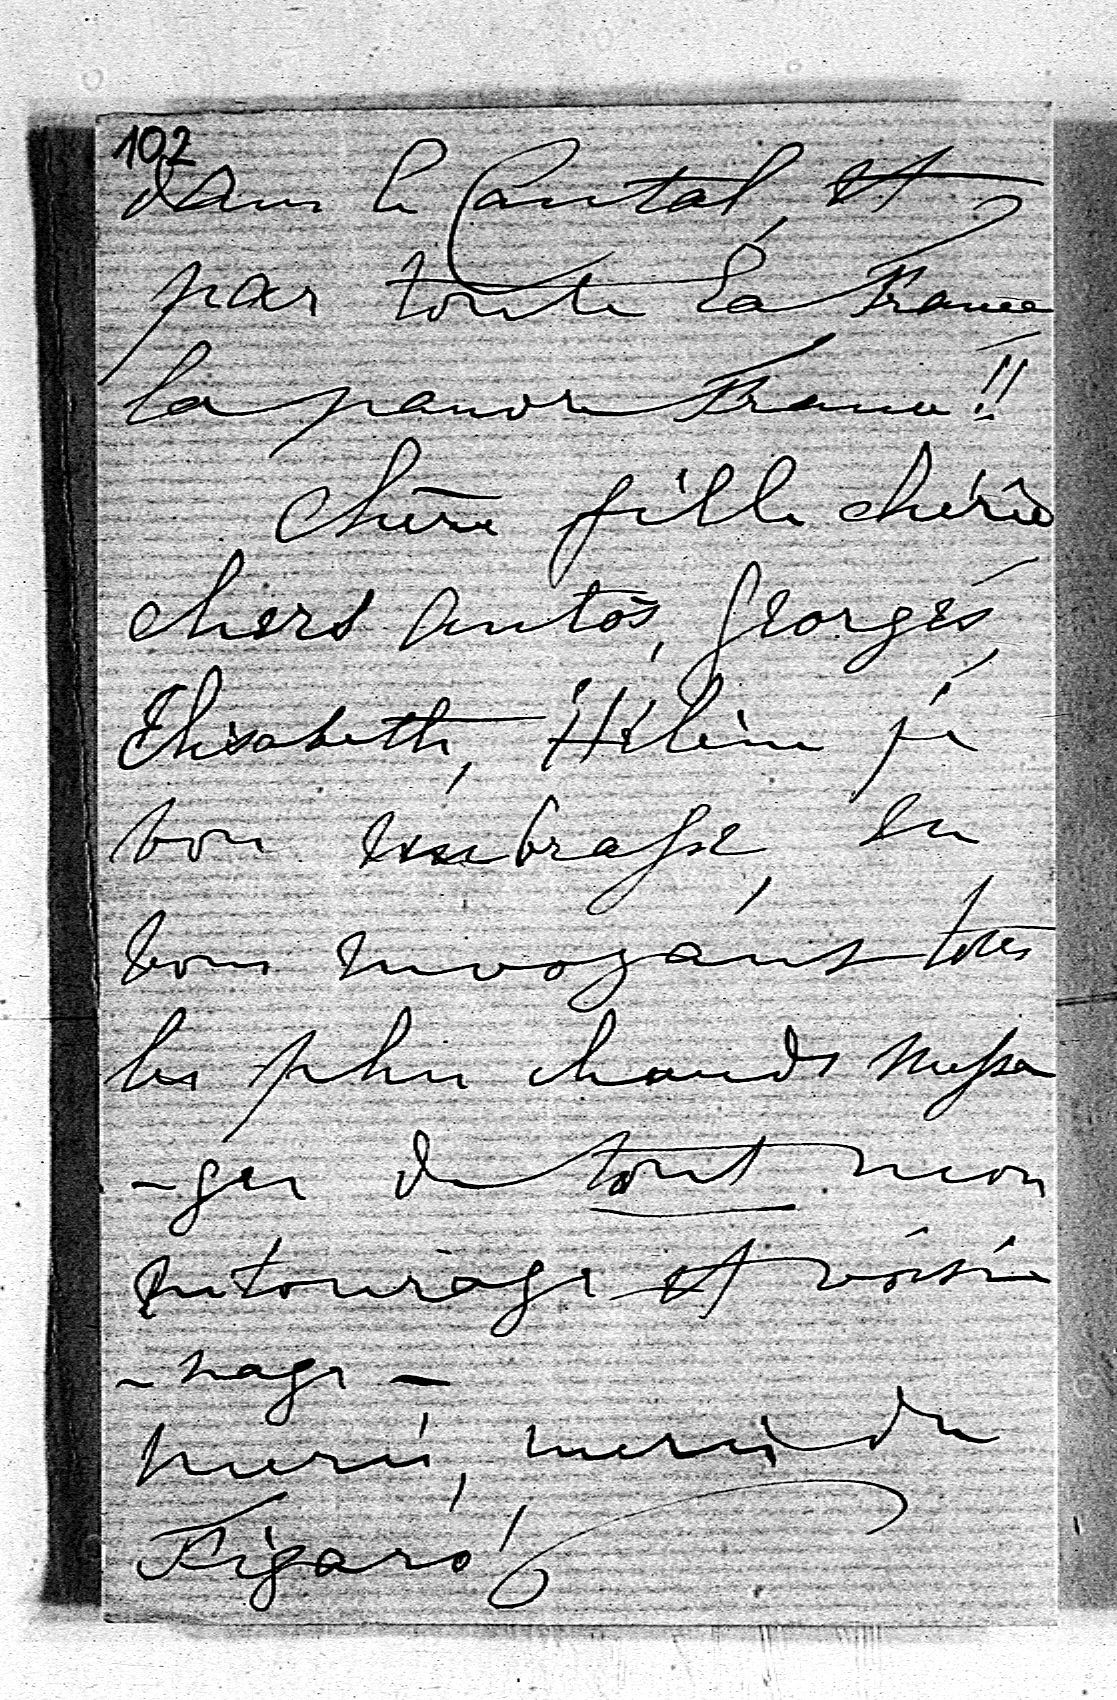 102
dans le Cantal, et
par toute la France
la pauvre France !!
Chère fille chérie
chers Antos, Georges,
Elisabeth, Hélène je
vou embrasse, en
vous envoyant tous
les plus chauds messa
-ges de tout mon
entourage et voisi
-nage -
merci, merci du
Figaro,